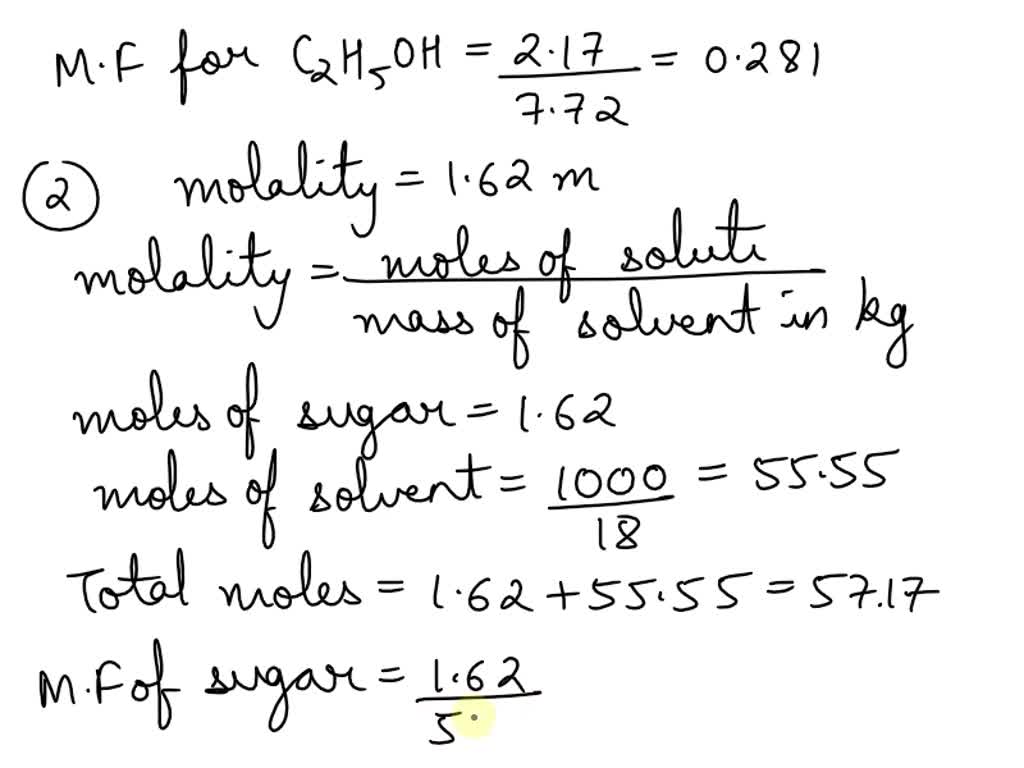 M.F for C₂H₅OH = 2.17/7.72 = 0.281
② molality = 1.62 m
molality = moles of soluti/mass of solvent in kg
moles of sugar = 1.62
moles of solvent = 1000/18 = 55.55
Total moles = 1.62 + 55.55 = 57.17
M.F of sugar = 1.62/5